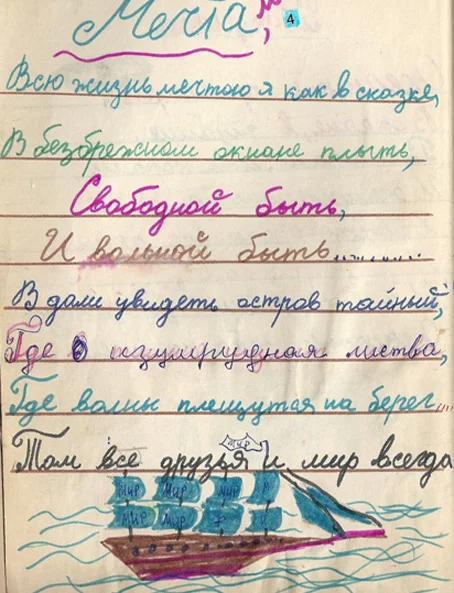 Мечта,
4
Всю жизнь мечтою я как в сказке,
В безбрежном окиане плыть,
Свободной быть,
И вольной быть..........
В дали увидеть остров тайный,
Где изумрудная листва,
Где волны плещутся на берег....
Там все друзья и мир всегда
МУР
МИР МИР МИР
МИР МИР